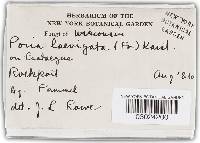 HERBARIUM OF THE
NEW YORK BOTANICAL GARDEN
NEW YORK
BOTANICAL
GARDEN
Fungi of Wisconsin
Poria laevigata (Fr.) Karst.
on Crataegus
Rockport Aug
By. Pammel
det. J. L. Lowe
NEW YORK BOTANICAL GARDEN